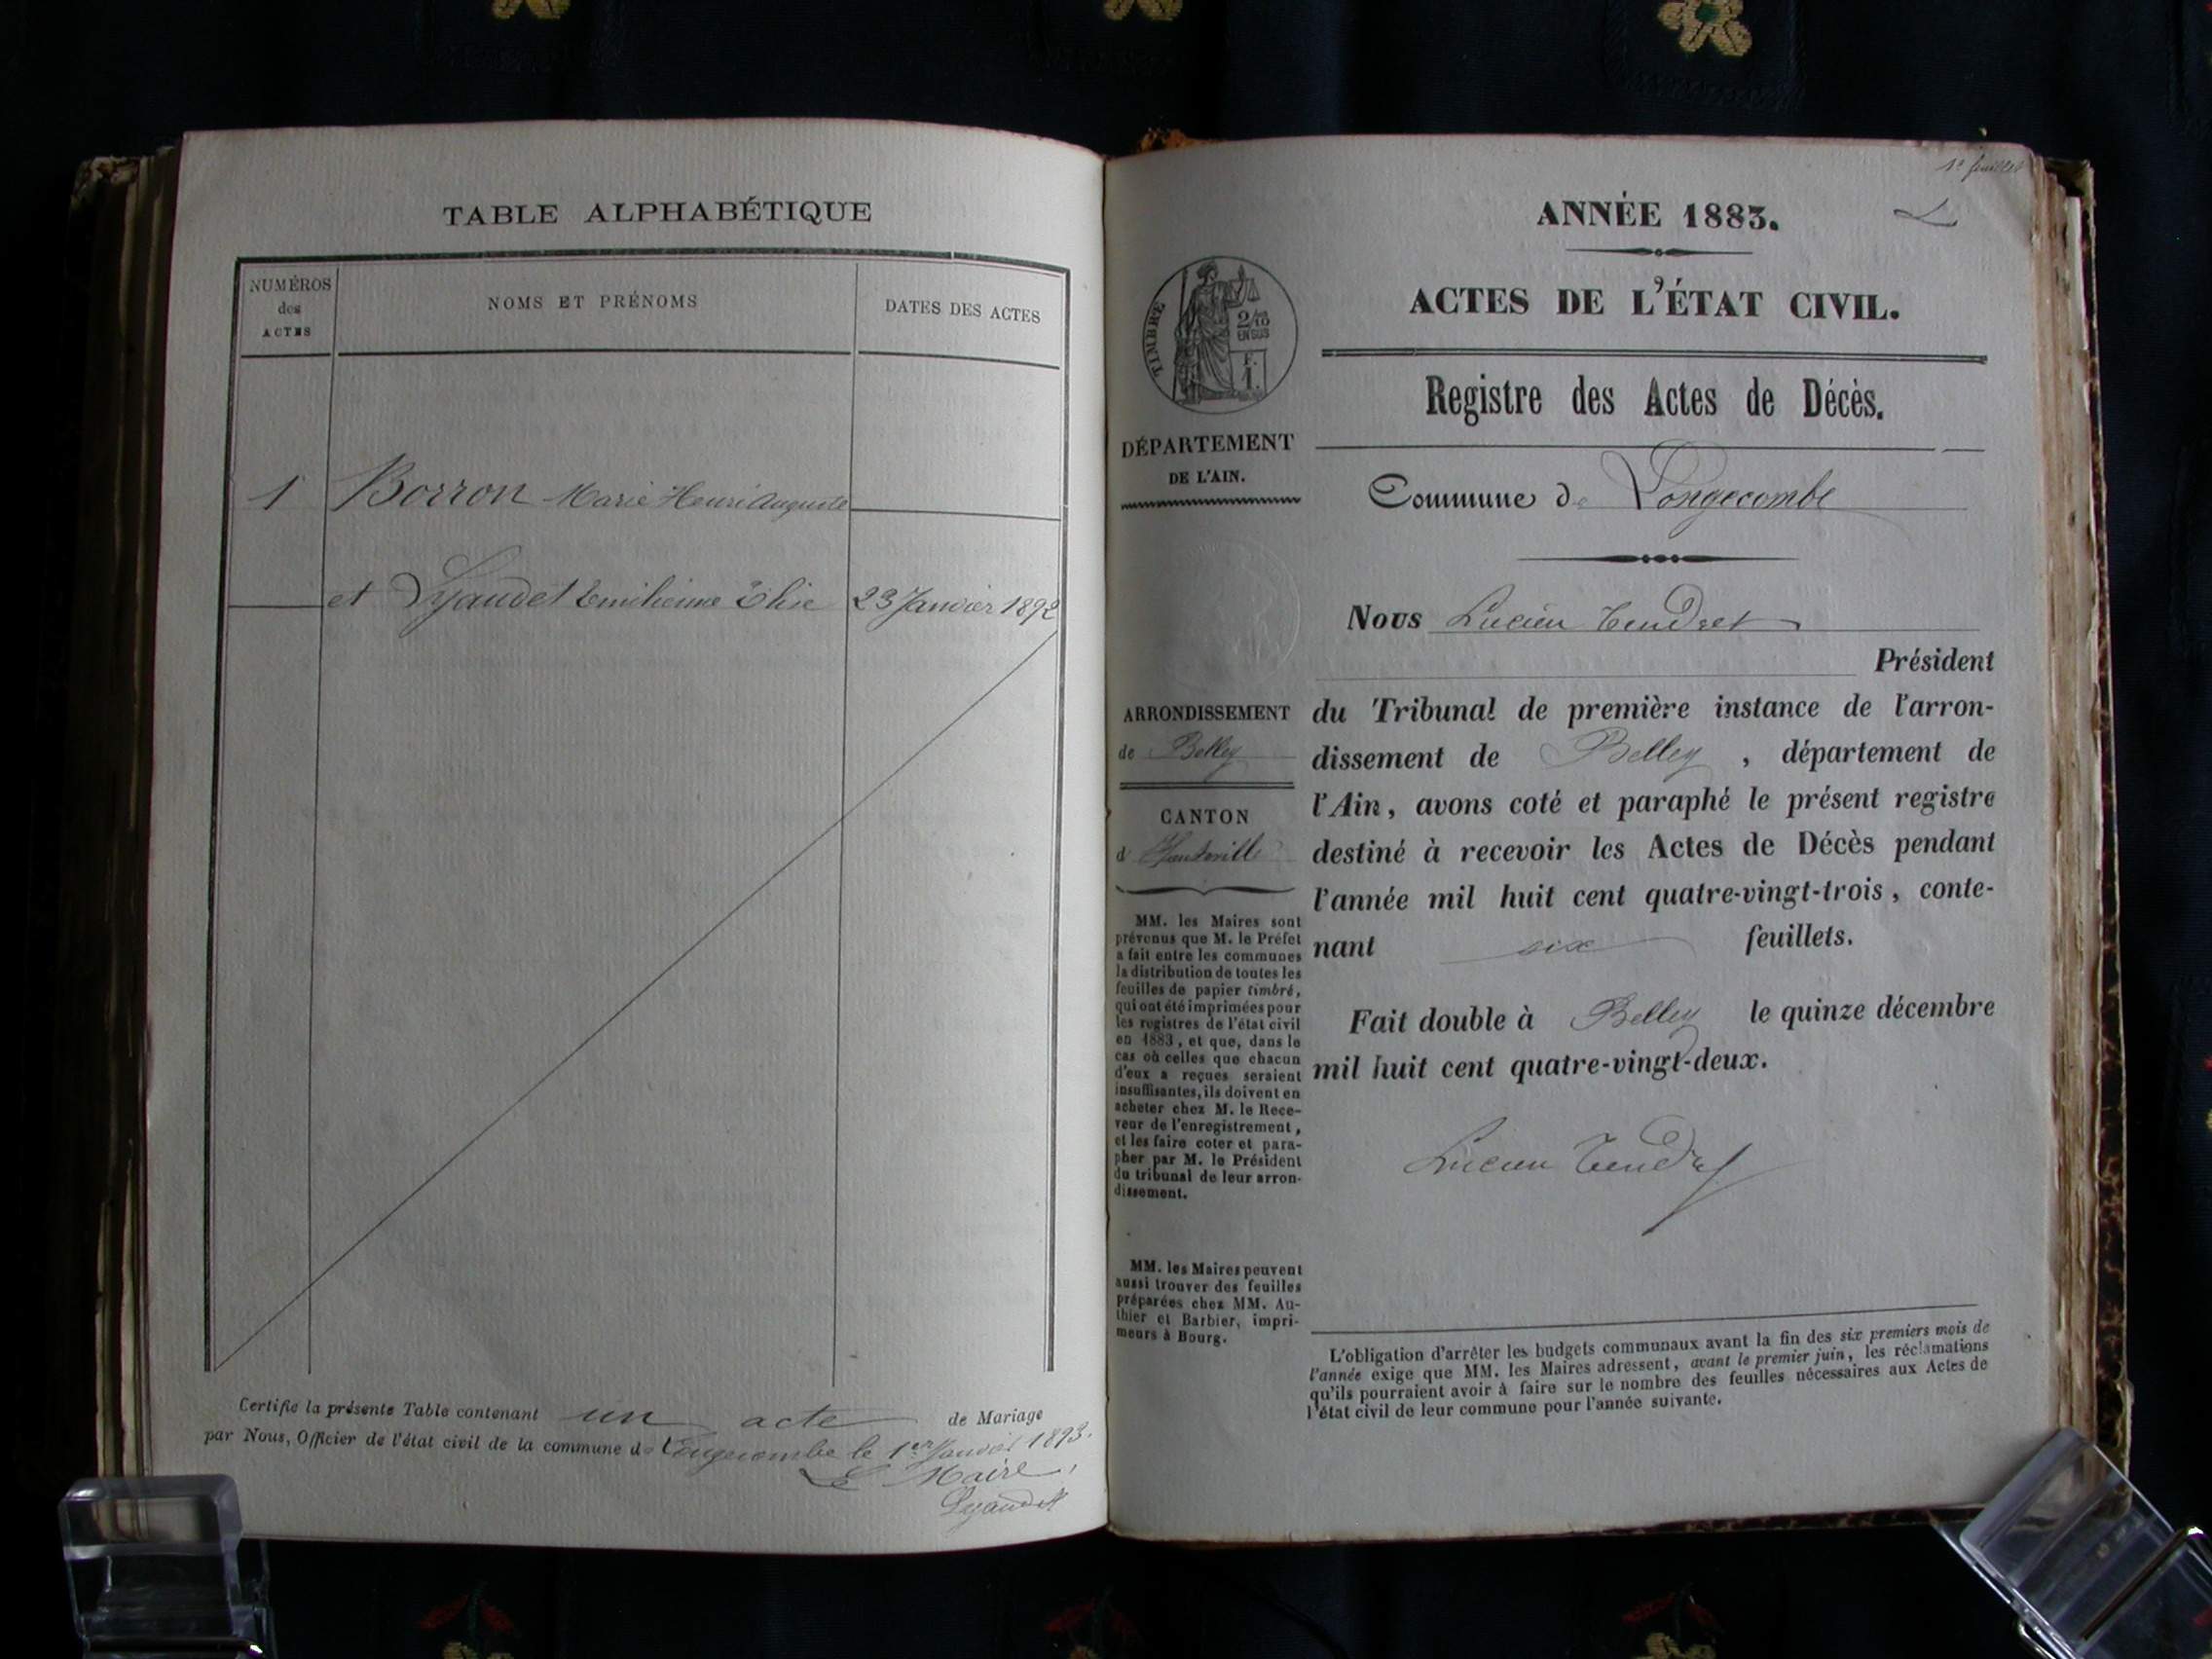 TABLE ALPHABÉTIQUE
NUMÉROS
des
ACTES
NOMS ET PRÉNOMS
DATES DES ACTES
1
Borron Marie Henri Auguste
et Lyaudet Emilienne Elise
23 Janvier 1892
Certifie la présente Table contenant un acte de Mariage
par Nous, Officier de l'état civil de la commune de Longecombe le 1er Janvier 1893.
Le Maire,
Lyaudet
1er feuillet
ANNÉE 1883.
ACTES DE L'ÉTAT CIVIL.
Registre des Actes de Décès.
Commune de Longecombe
TIMBRE
2/10
EN SUS
F.
1.
DÉPARTEMENT
DE L'AIN.
ARRONDISSEMENT
de Belley
CANTON
d' Hauteville
MM. les Maires sont
prévenus que M. le Préfet
a fait entre les communes
la distribution de toutes les
feuilles de papier timbré,
qui ont été imprimées pour
les registres de l'état civil
en 1883, et que, dans le
cas où celles que chacun
d'eux a reçues seraient
insuffisantes, ils doivent en
acheter chez M. le Rece-
veur de l'enregistrement,
et les faire coter et para-
pher par M. le Président
du tribunal de leur arron-
dissement.
MM. les Maires peuvent
aussi trouver des feuilles
préparées chez MM. Au-
thier et Barbier, impri-
meurs à Bourg.
Nous Lucien Tendret
Président
du Tribunal de première instance de l'arron-
dissement de Belley, département de
l'Ain, avons coté et paraphé le présent registre
destiné à recevoir les Actes de Décès pendant
l'année mil huit cent quatre-vingt-trois, conte-
nant six feuillets.
Fait double à Belley le quinze décembre
mil huit cent quatre-vingt-deux.
Lucien Tendret
L'obligation d'arrêter les budgets communaux avant la fin des six premiers mois de
l'année exige que MM. les Maires adressent, avant le premier juin, les réclamations
qu'ils pourraient avoir à faire sur le nombre des feuilles nécessaires aux Actes de
l'état civil de leur commune pour l'année suivante.